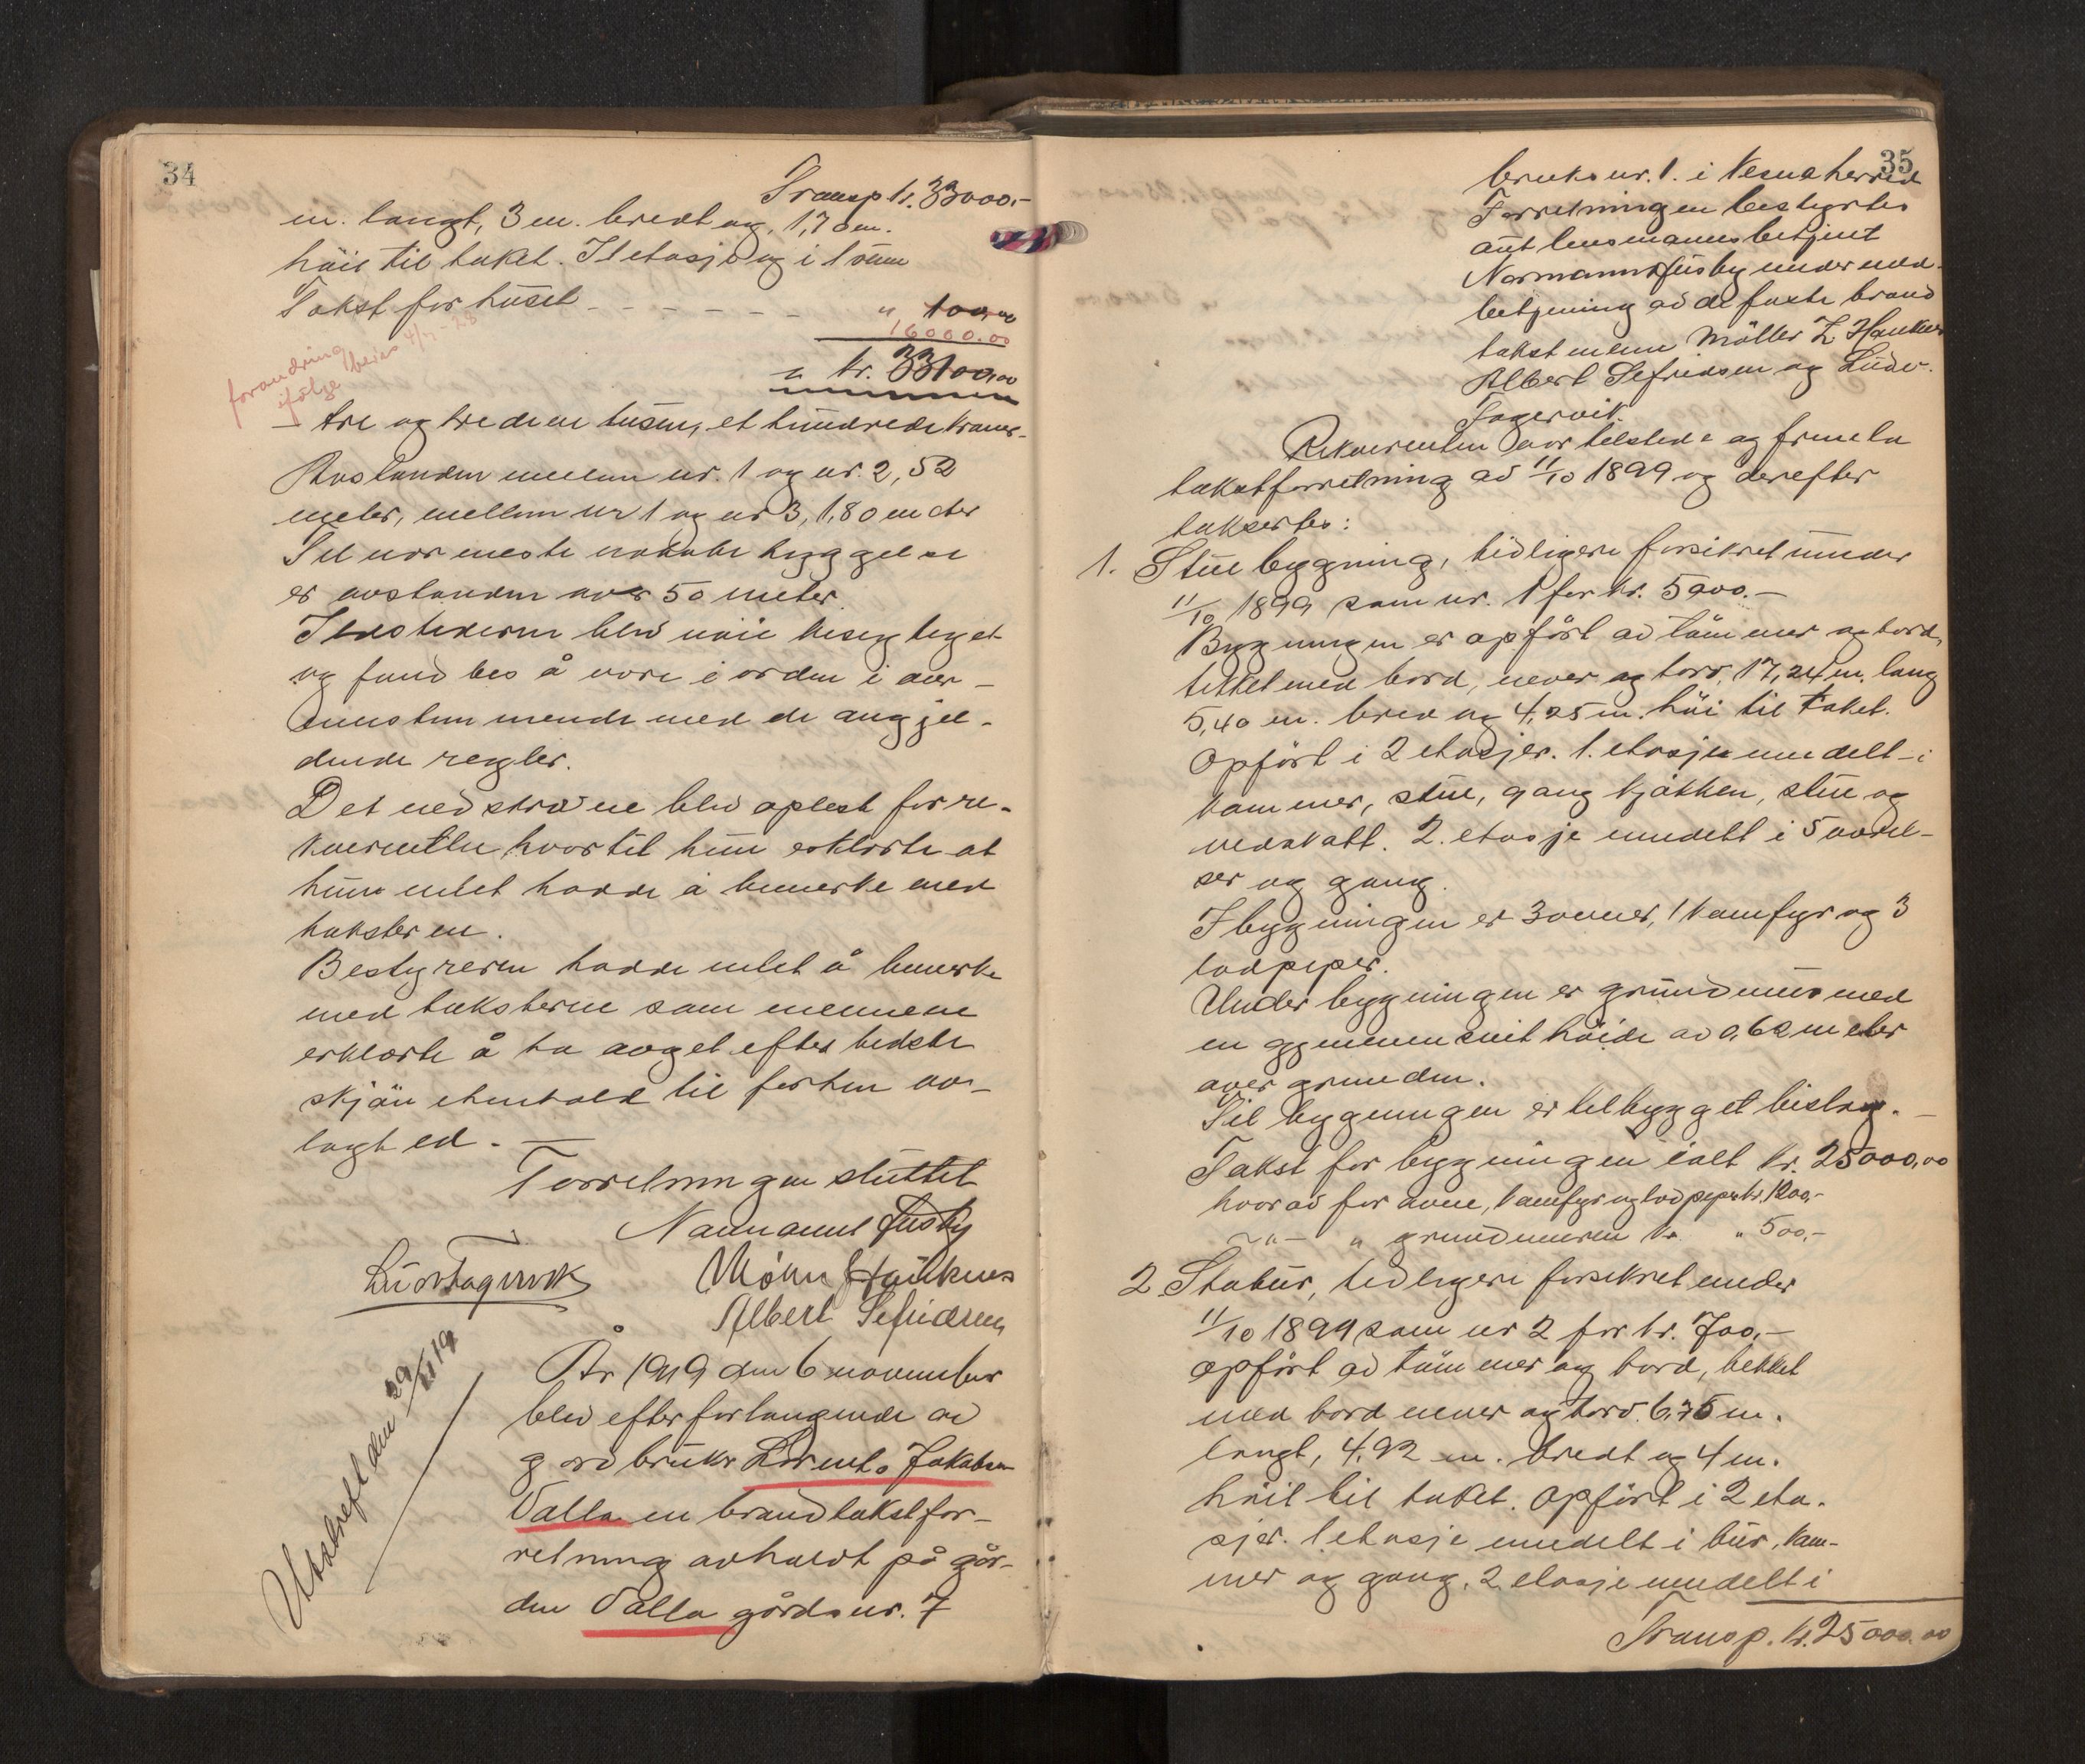 34
Transp kr. 33000,-
m. langt, 3 m. bredt og 1,70 m.
höit til taket. I 1 etasje og i 1 rum
Takst for huset - - - - - - " 100,00
16000.00
forandring
ifölge
4/7-23
kr. 33100,00
- tre og tredeve tusen, et hundrede kroner -
Avstanden mellem nr. 1 og nr. 2, 52
meter, mellem nr 1 og nr 3, 1,80 meter
Til nærmeste nabobebyggelse
er avstanden over 50 meter.
Ildstederne blev nöie besigtiget
og fundbes å være i orden i over-
ensstemmende med de angjel-
dende regler.
Det nedskrevne blev oplest for re-
kvirenten hvortil hun erklærte at
hun intet hadde å bemerke med
taksteren.
Bestyreren hadde intet å bemerke
med taksterne som mennene
erklærte å ha avget efter bedste
skjön i henhold til forhen av-
lagt ed. —
Forretningen sluttet
Normann Husby
Lüdv Fagervik
Albert Sefridsen
År 1919 den 6 november
blev efter forlangende av
gårdbruker Lorents Jakobsen
Valla en brandtakstfor-
retning avholdt på går-
den Valla gårdsnr. 7
Utskreft den 29/11 19
35
bruksnr. 1. i Nesna herred
Forretningen bestyrtes
aut lensmannsbetjent
Normann Husby under med-
betjening av de faste brand
takstmenn Möller Z. Hauknes
Albert Sefridsen og Lüdv.
Fagervik.
Rekvirenten var tilstede og fremla
takstforretning av 11/10 1899 og derefter
taksertes:
1. Stuebygning, tidligere forsikret under
11/10 1899 som nr. 1 for kr. 5900.-
Bygningen er opfört av tömmer og bord,
tekket med bord, never og torv, 17,24 m. lang
5,40 m. bred og 4,25 m. höi til taket.
Opfört i 2 etasjer. 1. etasje inndelt i
kammer, stue, gang kjökken, stue og
vedskott. 2. etasje inndelt i 5 værel-
ser og gang.
I bygningen er 3 ovner, 1 komfyr og 3
lodpiper.
Under bygningen er grundmur med
en gjennemsnit höide av 0,62 meter
over grunden.
Til bygningen er tilbygget bislag. -
Takst for bygningen ialt kr. 25000,00
hvorav for ovne, komfyr og lodpiper kr. 1200,-
—"— " grundmuren kr. " 500,-
2. Stabur, tidligere forsikret under
11/10 1899 som nr 2 for kr. 700,-
opfört av tömmer og bord, tekket
med bord never og torv. 6,75 m.
langt, 4,92 m. bredt og 4 m.
höit til taket. Opfört i 2 eta-
sjer. 1. etasje inndelt i bur, kam-
mer og gang. 2 etasje inndelt i
Transp. kr. 25000.00